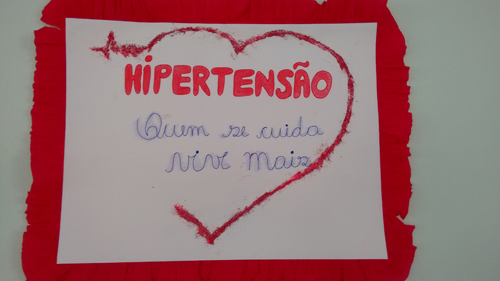 HiPERTENSÃO
Quem se cuida
vive mais